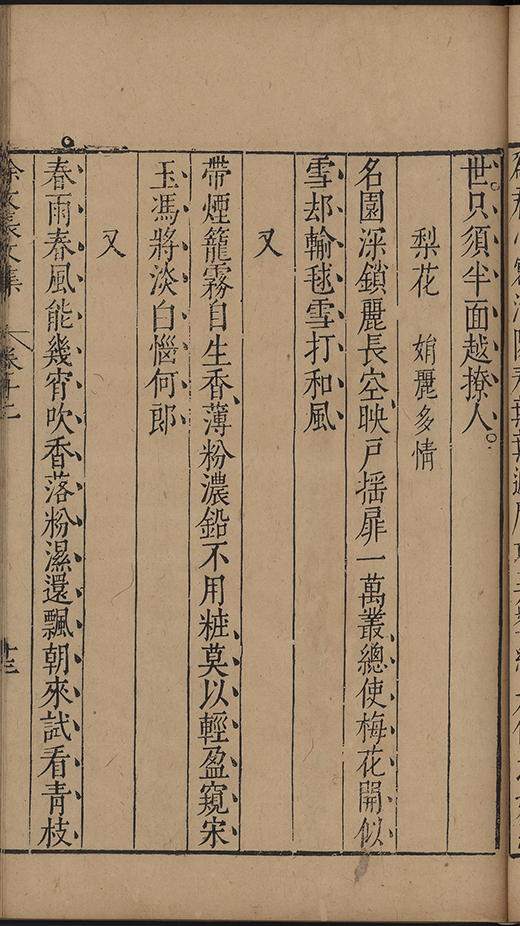 世只須半面越撩人
梨花　娟麗多情
名園深鎖麗長空映戸揺扉一萬叢總使梅花開似
雪却輸毬雪打和風
又
帶煙籠霧自生香薄粉濃鉛不用粧莫以輕盈窺宋
玉馮將淡白惱何郎
又
春雨春風能幾宵吹香落粉濕還飄朝來試看青枝
徐文長文集
卷十二
十三